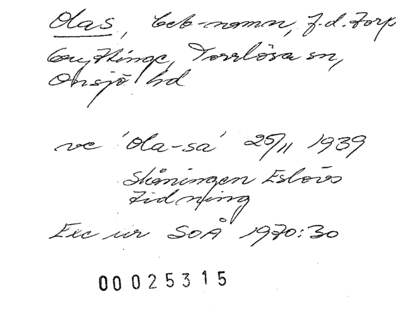 Olas, beb-namn, f.d. torp
Gryttinge, Torrlösa sn,
Onsjö hd
ve 'Ola-sa' 25/11 1939
Skåningen Eslövs
Tidning
Exc ur SOÅ 1970:30
00025315